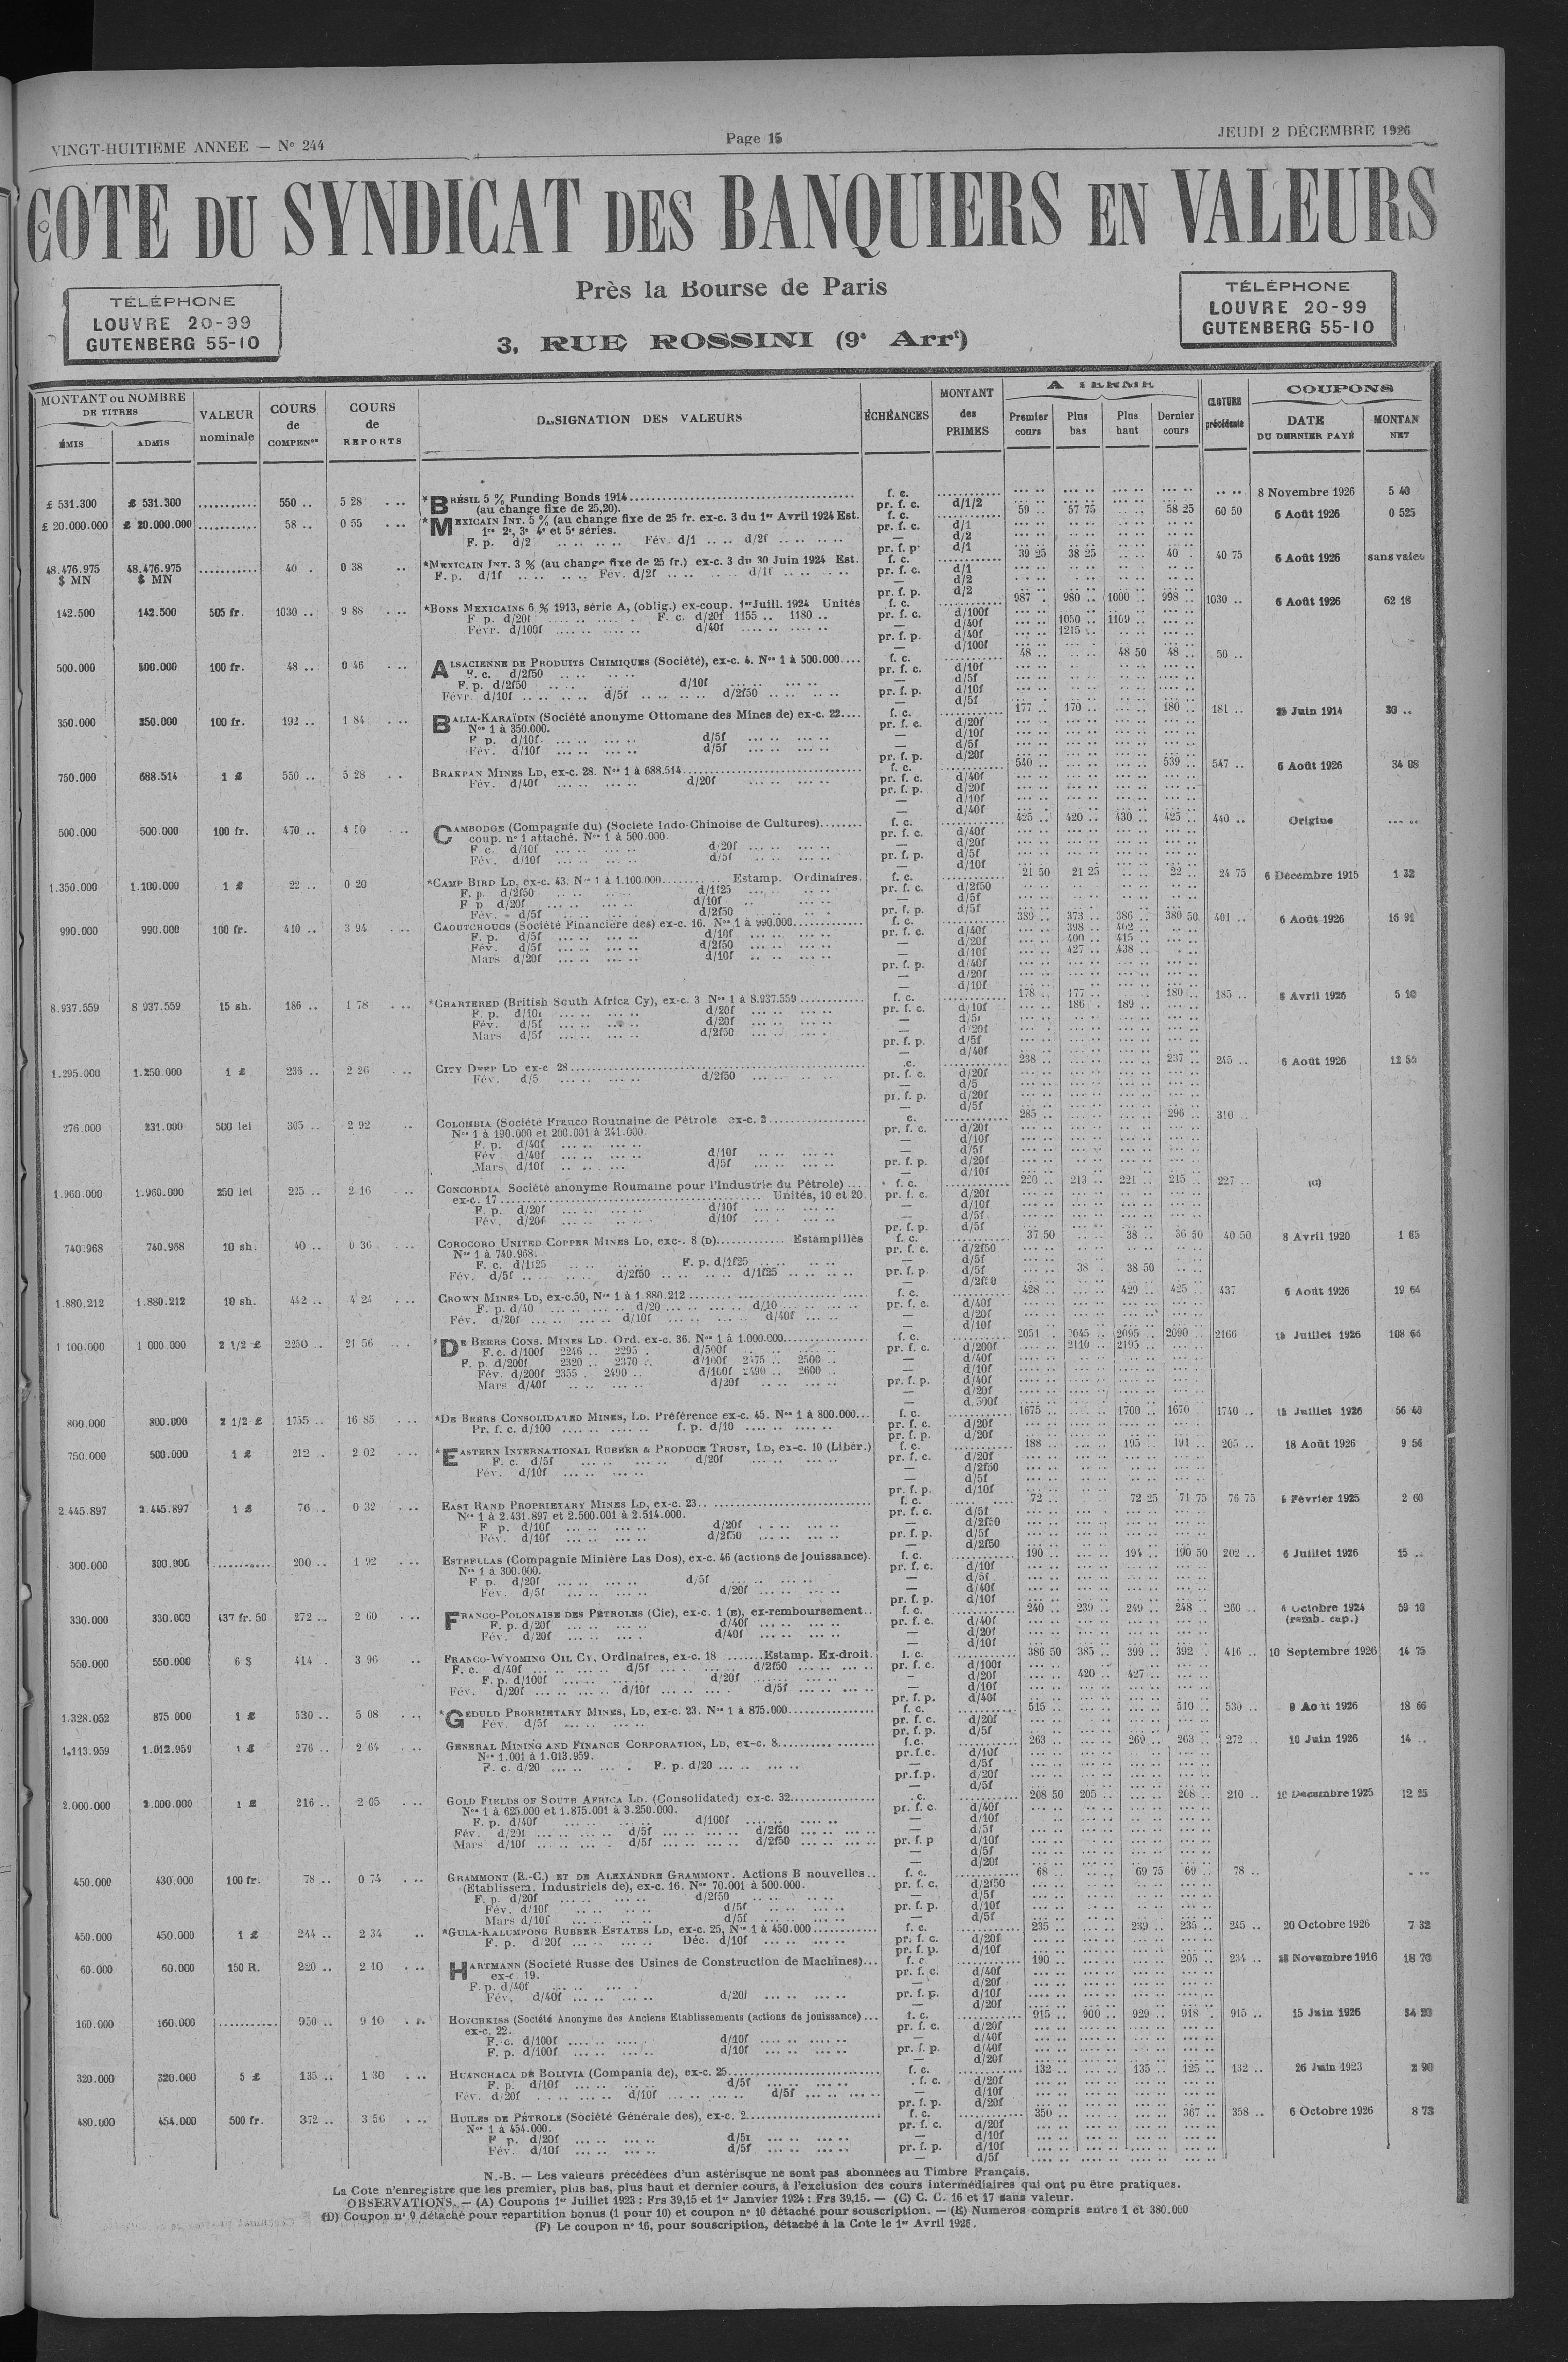 VINGT-HUITIÈME ANNEE — Nº 244
Page 15
JEUDI 2 DÉCEMBRE 1926
COTE DU SYNDICAT DES BANQUIERS EN VALEURS
Près la Bourse de Paris
3, RUE ROSSINI (9e Arrt)
TÉLÉPHONE
LOUVRE 20-99
GUTENBERG 55-10
TÉLÉPHONE
LOUVRE 20-99
GUTENBERG 55-10
MONTANT ou NOMBRE DE TITRES
ÉMIS ADMIS
VALEUR nominale
COURS de COMPENson
COURS de REPORTS
DESIGNATION DES VALEURS
ÉCHÉANCES
MONTANT des PRIMES
A TERME
Premier cours Plus bas Plus haut Dernier cours
CLOTURE précédente
COUPONS
DATE DU DERNIER PAYÉ MONTAN NET
£ 531.300 £ 531.300 ........... 550 .. 5 28 *BRÉSIL 5 % Funding Bonds 1914 f. c. 8 Novembre 1926 5 40
(au change fixe de 25,20). pr. f. c. d/1/2
£ 20.000.000 £ 20.000.000 ........... 58 .. 0 55 *MEXICAIN INT. 5 % (au change fixe de 25 fr. ex-c. 3 du 1er Avril 1924 Est. f. c. 59 .. 57 75 58 25 60 50 6 Août 1926 0 525
1re 2e, 3e 4e et 5e séries. pr. f. c. d/1
F. p. d/2 Fév. d/1 d/2f — d/2
pr. f. p. d/1
48.476.975 $ MN 48.476.975 $ MN ........... 40 . 0 38 *MEXICAIN INT. 3 % (au change fixe de 25 fr.) ex-c. 3 du 30 Juin 1924 Est. f. c. 39 25 38 25 40 . 40 75 6 Août 1926 sans valeu
F. p. d/1f Fév. d/2f d/1f pr. f. c. d/1
— d/2
pr. f. p. d/2
142.500 142.500 505 fr. 1030 .. 9 88 *BONS MEXICAINS 6 % 1913, série A, (oblig.) ex-coup. 1er Juill. 1924 Unités f. c. 987 . 980 .. 1000 .. 998 .. 1030 .. 6 Août 1926 62 18
F p. d/20f F. c. d/20f 1155 .. 1180 .. pr. f. c. d/100f
Févr. d/100f d/40f — d/40f 1050 .. 1109 ..
pr. f. p. d/40f 1215 ..
— d/100f
500.000 500.000 100 fr. 48 .. 0 46 ALSACIENNE DE PRODUITS CHIMIQUES (Société), ex-c. 4. Nos 1 à 500.000 f. c. 48 .. 48 50 48 .. 50 ..
F. c. d/2f50 pr. f. c. d/10f
F. p. d/2f50 d/10f — d/5f
Févr. d/10f d/5f d/2f50 pr. f. p. d/10f
— d/5f
350.000 350.000 100 fr. 192 .. 1 84 BALIA-KARAÏDIN (Société anonyme Ottomane des Mines de) ex-c. 22 f. c. 177 .. 170 .. 180 .. 181 .. Juin 1914 30 ..
Nos 1 à 350.000. pr. f. c. d/20f
F p. d/10f d/5f — d/10f
Fév. d/10f d/5f — d/5f
pr. f. p. d/20f
750.000 688.514 1 £ 550 .. 5 28 BRAKPAN MINES LD, ex-c. 28. Nos 1 à 688.514 f. c. 540 .. 539 .. 547 .. 6 Août 1926 34 08
Fév. d/40f d/20f pr. f. c. d/40f
pr. f. p. d/20f
— d/10f
— d/40f
500.000 500.000 100 fr. 470 .. 4 50 CAMBODGE (Compagnie du) (Société Indo-Chinoise de Cultures) f. c. 425 .. 420 .. 430 .. 425 .. 440 .. Origine
coup. nº 1 attaché. Nos 1 à 500.000. pr. f. c. d/40f
F c. d/10f d/20f — d/20f
Fév. d/10f d/5f pr. f. p. d/5f
— d/10f
1.350.000 1.100.000 1 £ 22 .. 0 20 *CAMP BIRD LD, ex-c. 43. Nos 1 à 1.100.000 Estamp. Ordinaires. f. c. 21 50 21 25 22 .. 24 75 6 Décembre 1915 1 32
F. p. d/2f50 d/1f25 pr. f. c. d/2f50
F p d/20f d/10f — d/5f
Fév. d/5f d/2f50 pr. f. p. d/5f
990.000 990.000 100 fr. 410 .. 3 94 CAOUTCHOUCS (Société Financière des) ex-c. 16. Nos 1 à 990.000 f. c. 380 .. 373 .. 386 .. 380 50 401 .. 6 Août 1926 16 91
F. p. d/5f d/10f pr. f. c. d/40f 398 .. 402 ..
Fév. d/5f d/2f50 — d/20f 400 .. 415 ..
Mars d/20f d/10f — d/10f 427 .. 438 .
pr. f. p. d/40f
— d/20f
— d/10f
8.937.559 8 937.559 15 sh. 186 .. 1 78 *CHARTERED (British South Africa Cy), ex-c. 3 Nos 1 à 8.937.559 f. c. 178 .. 177 .. 180 .. 185 .. 8 Avril 1926 5 10
F. p. d/10f d/20f pr. f. c. d/10f 186 . 189 ..
Fév. d/5f d/20f — d/5f
Mars d/5f d/2f50 — d/20f
pr. f. p. d/5f
— d/40f
1.295.000 1.250.000 1 £ 236 .. 2 26 CITY DEEP LD ex-c 28 .c. 238 .. 237 .. 245 .. 6 Août 1926 12 55
Fév. d/5 d/2f50 pr. f. c. d/20f
— d/5
pr. f. p. d/20f
— d/5f
276.000 231.000 500 lei 305 .. 2 92 COLOMBIA (Société Franco Roumaine de Pétrole ex-c. 2 c. 285 .. 296 .. 310 ..
Nos 1 à 190.000 et 200.001 à 241.000. pr. f. c. d/20f
F. p. d/40f — d/10f
Fév. d/40f d/10f — d/5f
Mars d/10f d/5f pr. f. p. d/20f
— d/10f
1.960.000 1.960.000 250 lei 225 .. 2 16 CONCORDIA Société anonyme Roumaine pour l'Industrie du Pétrole) f. c. 220 .. 213 .. 221 .. 215 .. 227 .. (C)
ex-c. 17 Unités, 10 et 20. pr. f. c. d/20f
F. p. d/20f d/10f — d/10f
Fév. d/20f d/10f — d/5f
pr. f. p. d/5f
740.968 740.968 10 sh. 40 .. 0 36 COROCORO UNITED COPPER MINES LD, ex-c. 8 (D) Estampillés f. c. 37 50 38 .. 36 50 40 50 8 Avril 1920 1 65
Nos 1 à 740.968. pr. f. c. d/2f50
F. c. d/1f25 F. p. d/1f25 — d/5f
Fév. d/5f d/2f50 d/1f25 pr. f. p. d/5f 38 . 38 50
— d/2f50
1.880.212 1.880.212 10 sh. 442 .. 4 24 CROWN MINES LD, ex-c.50, Nos 1 à 1.880.212 f. c. 428 .. 429 .. 425 .. 437 6 Août 1926 19 64
F. p. d/40 d/20 d/10 pr. f. c. d/40f
Fév. d/20f d/10f d/40f — d/20f
— d/10f
1 100.000 1 000 000 2 1/2 £ 2250 .. 21 56 *DE BEERS CONS. MINES LD. Ord. ex-c. 36. Nos 1 à 1.000.000 f. c. 2051 .. 2045 .. 2095 .. 2090 .. 2166 Juillet 1926 108 66
F.c. d/100f 2246 .. 2295 . d/500f pr. f. c. d/200f 2110 .. 2195 ..
F. p. d/200f 2320 .. 2370 .. d/100f 2475 .. 2500 .. — d/40f
Fév. d/200f 2355 . 2490 .. d/100f 2490 .. 2600 .. — d/10f
Mars d/40f d/20f pr. f. p. d/40f
— d/20f
— d.500f
800.000 800.000 2 1/2 £ 1755 .. 16 85 *DE BEERS CONSOLIDATED MINES, LD. Préférence ex-c. 45. Nos 1 à 800.000 f. c. 1675 .. 1700 .. 1670 1740 .. Juillet 1926 56 40
Pr. f. c. d/100 f. p. d/10 pr. f. c. d/20f
pr. f. p. d/20f
750.000 500.000 1 £ 212 . 2 02 *EASTERN INTERNATIONAL RUBBER & PRODUCE TRUST, LD, ex-c. 10 (Libér.) f. c. 188 .. 195 .. 191 .. 205 .. 18 Août 1926 9 56
F. c. d/5f d/20f pr. f. c. d/20f
Fév. d/10f — d/2f50
— d/5f
pr. f. p. d/10f
2.445.897 2.445.897 1 £ 76 .. 0 32 EAST RAND PROPRIETARY MINES LD, ex-c. 23 f. c. 72 .. 72 25 71 75 76 75 Février 1925 2 60
Nos 1 à 2.431.897 et 2.500.001 à 2.514.000. pr. f. c. d/5f
F p. d/10f d/20f — d/2f50
Fév. d/10f d/2f50 pr. f. p. d/5f
— d/2f50
300.000 300.000 ........... 200 .. 1 92 ESTRELLAS (Compagnie Minière Las Dos), ex-c. 46 (actions de jouissance). f. c. 190 .. 194 .. 190 50 202 .. 6 Juillet 1926 15 ..
Nos 1 à 300.000. pr. f. c. d/10f
F. p. d/20f d/5f — d/5f
Fév. d/5f d/20f — d/40f
pr. f. p. d/10f
330.000 330.000 437 fr. 50 272 .. 2 60 FRANCO-POLONAISE DES PÉTROLES (Cie), ex-c. 1 (E), ex-remboursement f. c. 240 .. 239 .. 249 .. 248 .. 260 .. Octobre 1924 59 10
F. p. d/20f d/40f pr. f. c. d/40f (remb. cap.)
Fév. d/20f d/40f — d/20f
— d/10f
550.000 550.000 6 $ 414 .. 3 96 FRANCO-WYOMING OIL Cy, Ordinaires, ex-c. 18 Estamp. Ex-droit. f. c. 386 50 385 .. 399 .. 392 .. 416 .. 10 Septembre 1926 14 75
F. c. d/40f d/5f d/2f50 pr. f. c. d/100f
F. p. d/100f d/20f — d/20f 420 .. 427 ..
Fév. d/20f d/10f d/5f — d/10f
pr. f. p. d/40f
1.328.052 875.000 1 £ 530 .. 5 08 *GEDULD PRORRIETARY MINES, LD, ex-c. 23. Nos 1 à 875.000 f. c. 515 .. 510 .. 530 .. Août 1926 18 66
Fév. d/5f pr. f. c. d/20f
pr. f. p. d/5f
1.113.959 1.012.959 1 £ 276 .. 2 64 GENERAL MINING AND FINANCE CORPORATION, LD, ex-c. 8 f.c. 263 .. 269 .. 263 .. 272 . 10 Juin 1926 14 ..
Nos 1.001 à 1.013.959. pr.f.c. d/10f
F. c. d/20 F. p. d/20 — d/5f
pr.f.p. d/20f
— d/5f
2.000.000 2.000.000 1 £ 216 .. 2 05 GOLD FIELDS OF SOUTH AFRICA LD. (Consolidated) ex-c. 32 . c. 208 50 205 .. 208 .. 210 .. 10 Décembre 1925 12 25
Nos 1 à 625.000 et 1.875.001 à 3.250.000. pr. f. c. d/40f
F. p. d/40f d/100f — d/10f
Fév. d/20f d/5f d/2f50 — d/5f
Mars d/10f d/5f d/2f50 pr. f. p d/10f
— d/5f
— d/20f
450.000 430.000 100 fr. 78 .. 0 74 GRAMMONT (E.-C.) ET DE ALEXANDRE GRAMMONT. Actions B nouvelles f. c. 68 .. 69 75 69 .. 78 ..
(Etablissem. Industriels de), ex-c. 16. Nos 70.001 à 500.000. pr. f. c. d/2f50
F. p. d/20f d/2f50 — d/5f
Fév. d/10f d/5f pr. f. p. d/10f
Mars d/10f d/5f — d/5f
450.000 450.000 1 £ 244 .. 2 34 *GULA-KALUMPONG RUBBER ESTATES LD, ex-c. 25, Nos 1 à 450.000 f. c. 235 .. 239 .. 235 .. 245 .. 20 Octobre 1926 7 32
F. p. d/20f Déc. d/10f pr. f. c. d/20f
pr. f. p. d/10f
60.000 60.000 150 R. 220 .. 2 10 HARTMANN (Société Russe des Usines de Construction de Machines) f. c 190 .. 205 .. 234 .. Novembre 1916 18 70
ex-c. 19. pr. f. c. d/40f
F. p. d/40f — d/20f
Fév. d/40f d/20f pr. f. p. d/10f
— d/20f
160.000 160.000 ........... 950 .. 9 10 HOTCHKISS (Société Anonyme des Anciens Etablissements (actions de jouissance) f. c. 915 .. 900 .. 929 .. 918 . 915 .. 15 Juin 1926 34 20
ex-c. 22. pr. f. c. d/20f
F. c. d/100f d/10f — d/40f
F. p. d/100f d/10f pr. f. p. d/40f
— d/20f
320.000 320.000 5 £ 135 .. 1 30 HUANCHACA DE BOLIVIA (Compania de), ex-c. 25 f. c. 132 .. 135 .. 125 .. 132 .. 26 Juin 1923 2 90
F. p. d/10f d/5f . f. c. d/20f
Fév. d/20f d/10f d/5f — d/10f
pr. f. p. d/20f
480.000 454.000 500 fr. 372 .. 3 56 HUILES DE PÉTROLE (Société Générale des), ex-c. 2 f. c. 350 .. 367 .. 358 .. 6 Octobre 1926 8 73
Nos 1 à 454.000. pr. f. c. d/20f
F p. d/20f d/5f — d/10f
Fév. d/10f d/5f pr. f. p. d/10f
— d/5f
N.-B. — Les valeurs précédées d'un astérisque ne sont pas abonnées au Timbre Français.
La Cote n'enregistre que les premier, plus bas, plus haut et dernier cours, à l'exclusion des cours intermédiaires qui ont pu être pratiques.
OBSERVATIONS. — (A) Coupons 1er Juillet 1923 : Frs 39,15 et 1er Janvier 1924 : Frs 39,15. — (C) C. C. 16 et 17 sans valeur.
(D) Coupon nº 9 détaché pour repartition bonus (1 pour 10) et coupon nº 10 détaché pour souscription. — (E) Numeros compris entre 1 et 380.000
(F) Le coupon nº 16, pour souscription, détaché à la Cote le 1er Avril 1926.